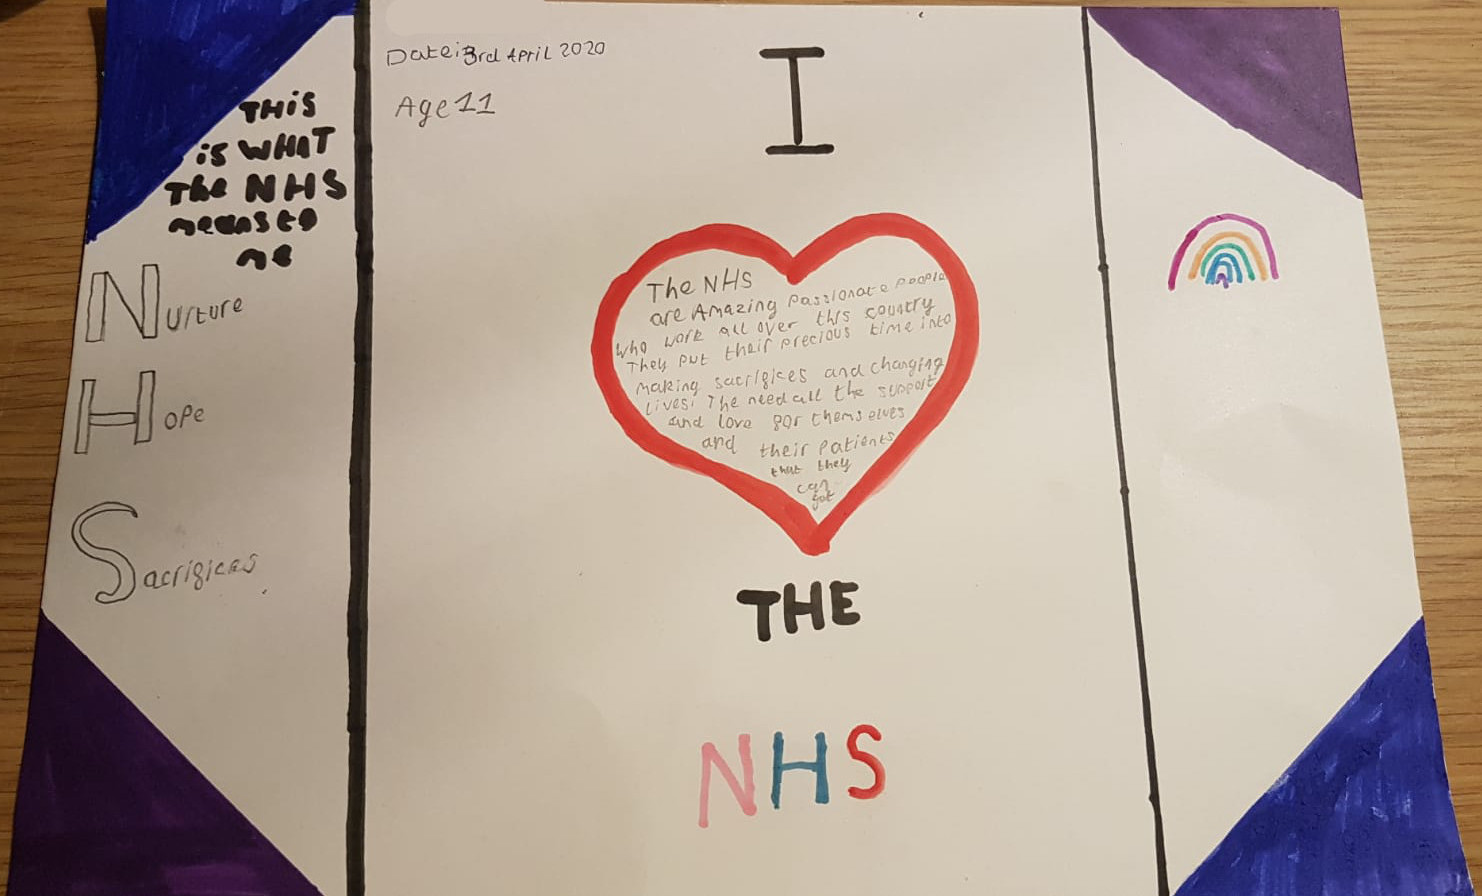 THiS
iS WHAT
The NHS
means to
me
Nurture
Hope
Sacrifices
Date: 3rd April 2020
Age 11
I
The NHS
are Amazing passionate people
who work all over this country
They put their precious time into
making sacrifices and changing
lives! The need all the support
and love for themselves
and their patients
that they
can
get
THE
NHS